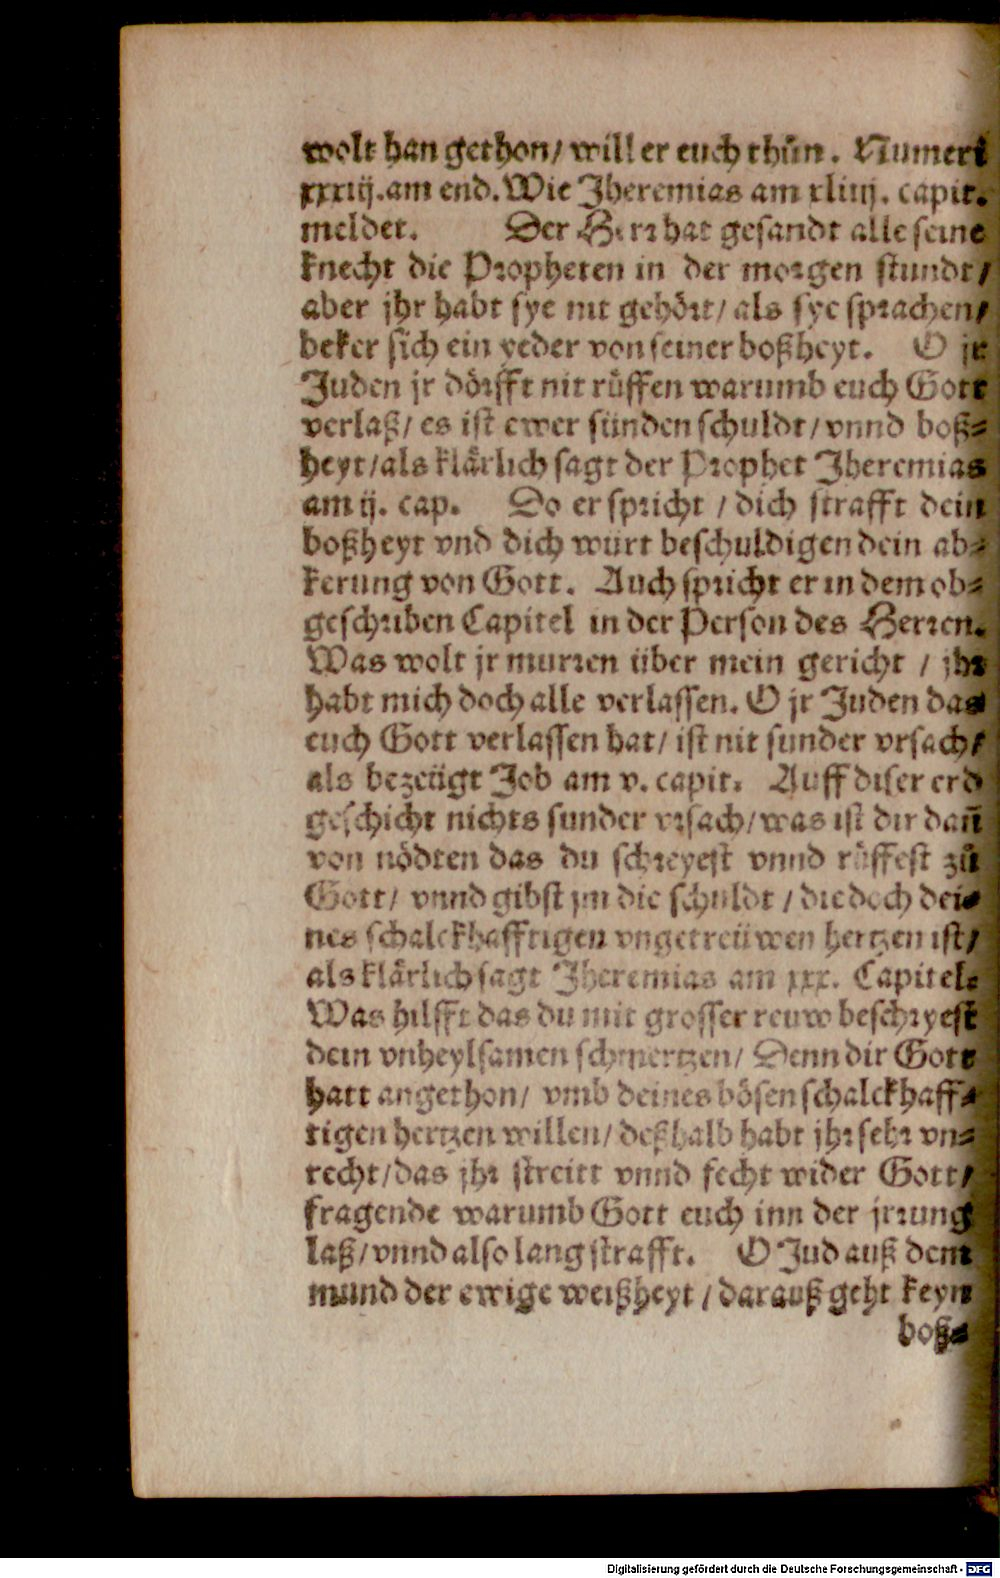 wolt han gethon/ will er euch thůn. Numeri
xxxiij.am end. Wie Jheremias am xliiij. capit.
meldet. Der Herr hat gesandt alle seine
knecht die Propheten in der morgen stundt/
aber jhr habt sye nit gehört/ als sye sprachen/
beker sich ein yeder von seiner boßheyt. O jr
Juden jr dörfft nit růffen warumb euch Gott
verlaß/ es ist ewer sünden schuldt/ vnnd boß-
heyt/als klärlich sagt der Prophet Jheremias
am ij. cap. Do er spricht / dich strafft dein
boßheyt vnd dich würt beschuldigen dein ab-
kerung von Gott. Auch spricht er in dem ob-
geschriben Capitel in der Person des Herren.
Was wolt jr murren über mein gericht / jhr
habt mich doch alle verlassen. O jr Juden das
euch Gott verlassen hat/ ist nit sunder vrsach/
als bezeügt Job am v. capit. Auff diser erd
geschicht nichts sunder vrsach/ was ist dir dañ
von nödten das du schreyest vnnd růffest zů
Gott/ vnnd gibst jm die schuldt / die doch dei-
nes schalckhafftigen vngetreüwen hertzen ist/
als klärlich sagt Jheremias am xxx. Capitel.
Was hilfft das du mit grosser reuw beschryest
dein vnheylsamen schmertzen/ Denn dir Gott
hatt angethon/ vmb deines bösen schalckhaff-
tigen hertzen willen/ deßhalb habt jhr sehr vn-
recht/das jhr streitt vnnd fecht wider Gott/
fragende warumb Gott euch inn der jrrung
laß/vnnd also lang strafft. O Jud auß dem
mund der ewige weißheyt / darauß geht keyn
boß-
Digitalisierung gefördert durch die Deutsche Forschungsgemeinschaft - DFG